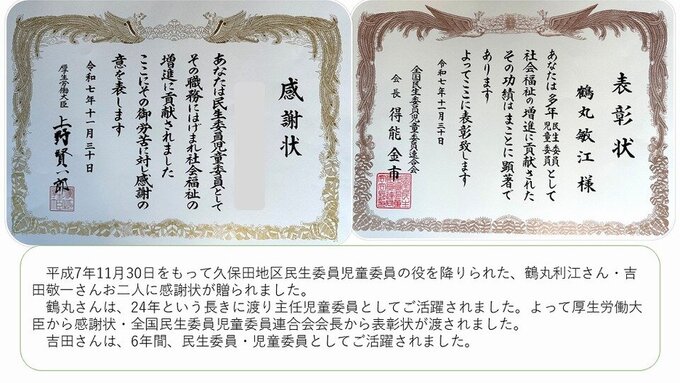 感謝状
あなたは民生委員児童委員として
その職務にはげまれ社会福祉の
増進に貢献されました
ここにその御労苦に対し感謝の
意を表します
令和七年十一月三十日
厚生労働大臣 上野賢一郎
表彰状
鶴丸敏江様
あなたは多年民生委員児童委員として
社会福祉の増進に貢献された
その功績はまことに顕著で
あります
よってここに表彰致します
令和七年十一月三十日
全国民生委員児童委員連合会
会長 得能金市
平成7年11月30日をもって久保田地区民生委員児童委員の役を降りられた、鶴丸利江さん・吉
田敬一さんお二人に感謝状が贈られました。
鶴丸さんは、24年という長きに渡り主任児童委員としてご活躍されました。よって厚生労働大
臣から感謝状・全国民生委員児童委員連合会会長から表彰状が渡されました。
吉田さんは、6年間、民生委員・児童委員としてご活躍されました。